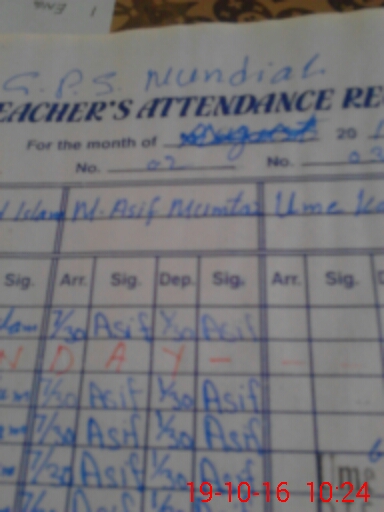 G.P.S. Mundial
TEACHER'S ATTENDANCE RE
For the month of August 20
No. 02 No. 03
Islam M. Asif Mumtaz Ume
Sig. Arr. Sig. Dep. Sig. Arr. Sig.
lam 7/30 Asif 1/30 Asif
N D A Y - -
am 7/30 Asif 1/30 Asif
am 7/30 Asif 1/30 Asif
7/30 Asif 1/30 Asif
Ume
19-10-16 10:24